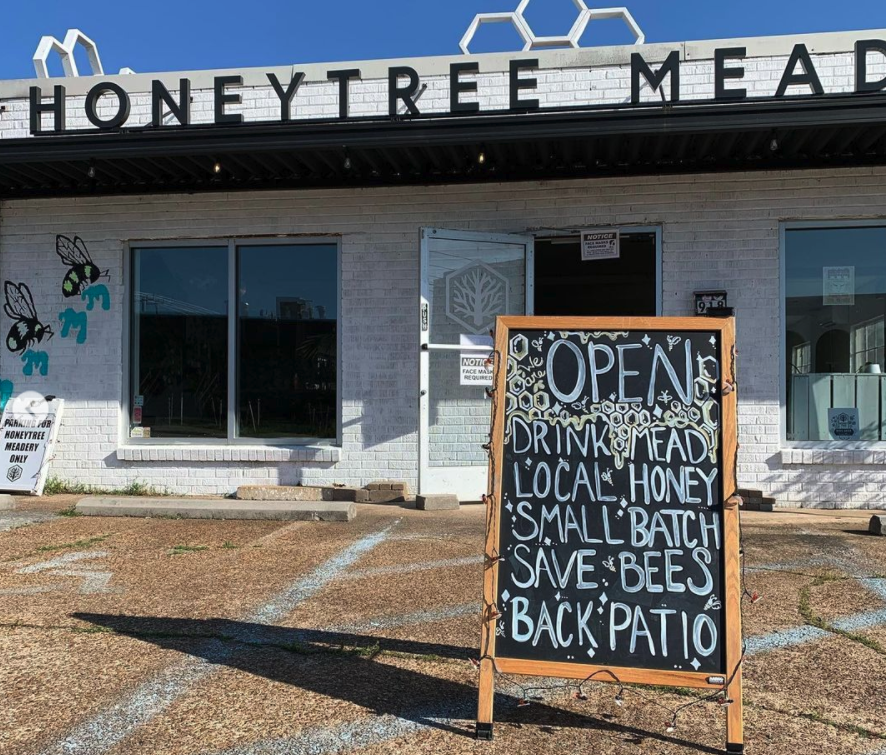 HONEYTREE MEAD
NOTICE
FACE MASKS
REQUIRED
918
NOTICE
FACE MASK
REQUIRED
OPEN
DRINK MEAD
LOCAL HONEY
SMALL BATCH
SAVE BEES
BACK PATIO
PARKING FOR
HONEYTREE
MEADERY
ONLY